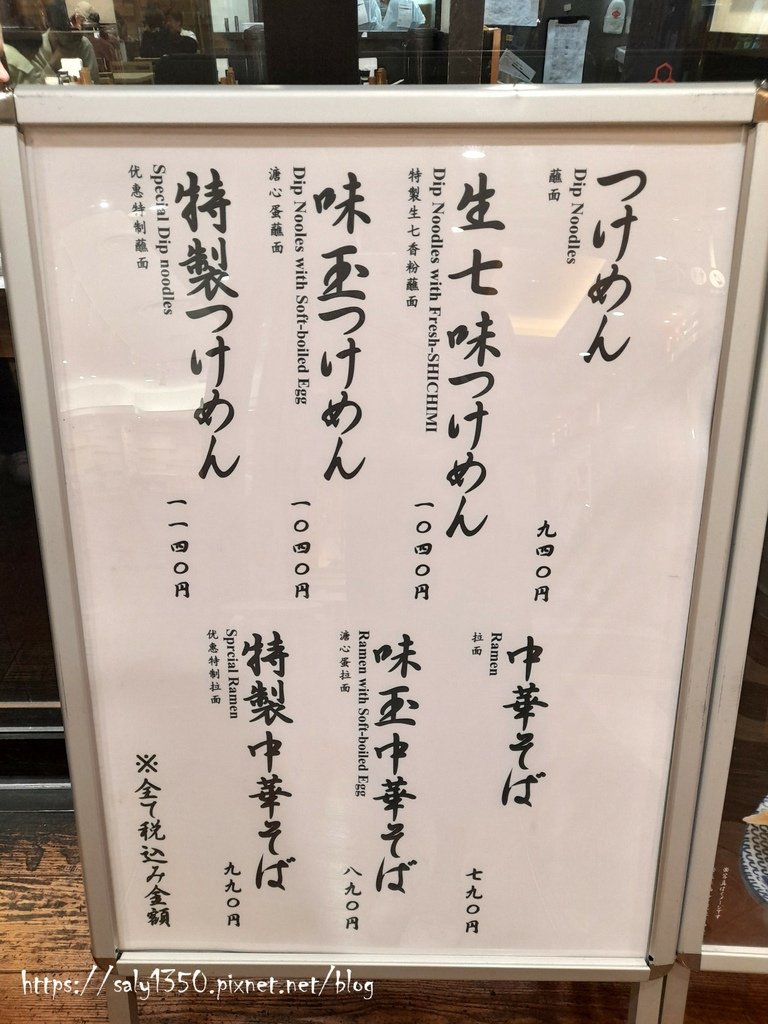 つけめん
Dip Noodles
蘸面
九四〇円
生七味つけめん
Dip Noodles with Fresh-SHICHIMI
特製生七香粉蘸面
一〇四〇円
味玉つけめん
Dip Nooles with Soft-boiled Egg
溏心蛋蘸面
一〇四〇円
特製つけめん
Special Dip noodles
优惠特制蘸面
一一四〇円
中華そば
Ramen
拉面
七九〇円
味玉中華そば
Ramen with Soft-boiled Egg
溏心蛋拉面
八九〇円
特製中華そば
Sprcial Ramen
优惠特制拉面
九九〇円
※全て税込み金額
https://saly1350.pixnet.net/blog